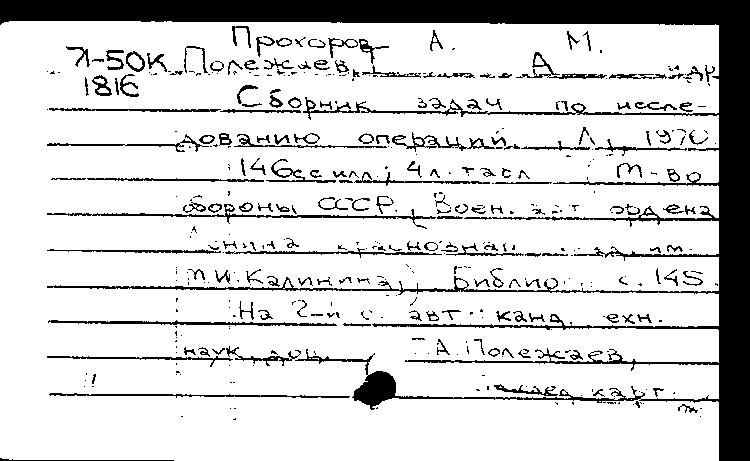 Прохоров А. М.
Л-50К Полежаев, А и др
1816
Сборник задач по иссле-
дованию операций. Л., 1970
146 с с илл.; 4 л. табл М-во
обороны СССР. Воен. ордена
Ленина краснознам им.
М.И. Калинина, Библио с. 145.
На 2-й с. авт канд. ехн.
наук, доц. А. Полежаев,
след. карт.